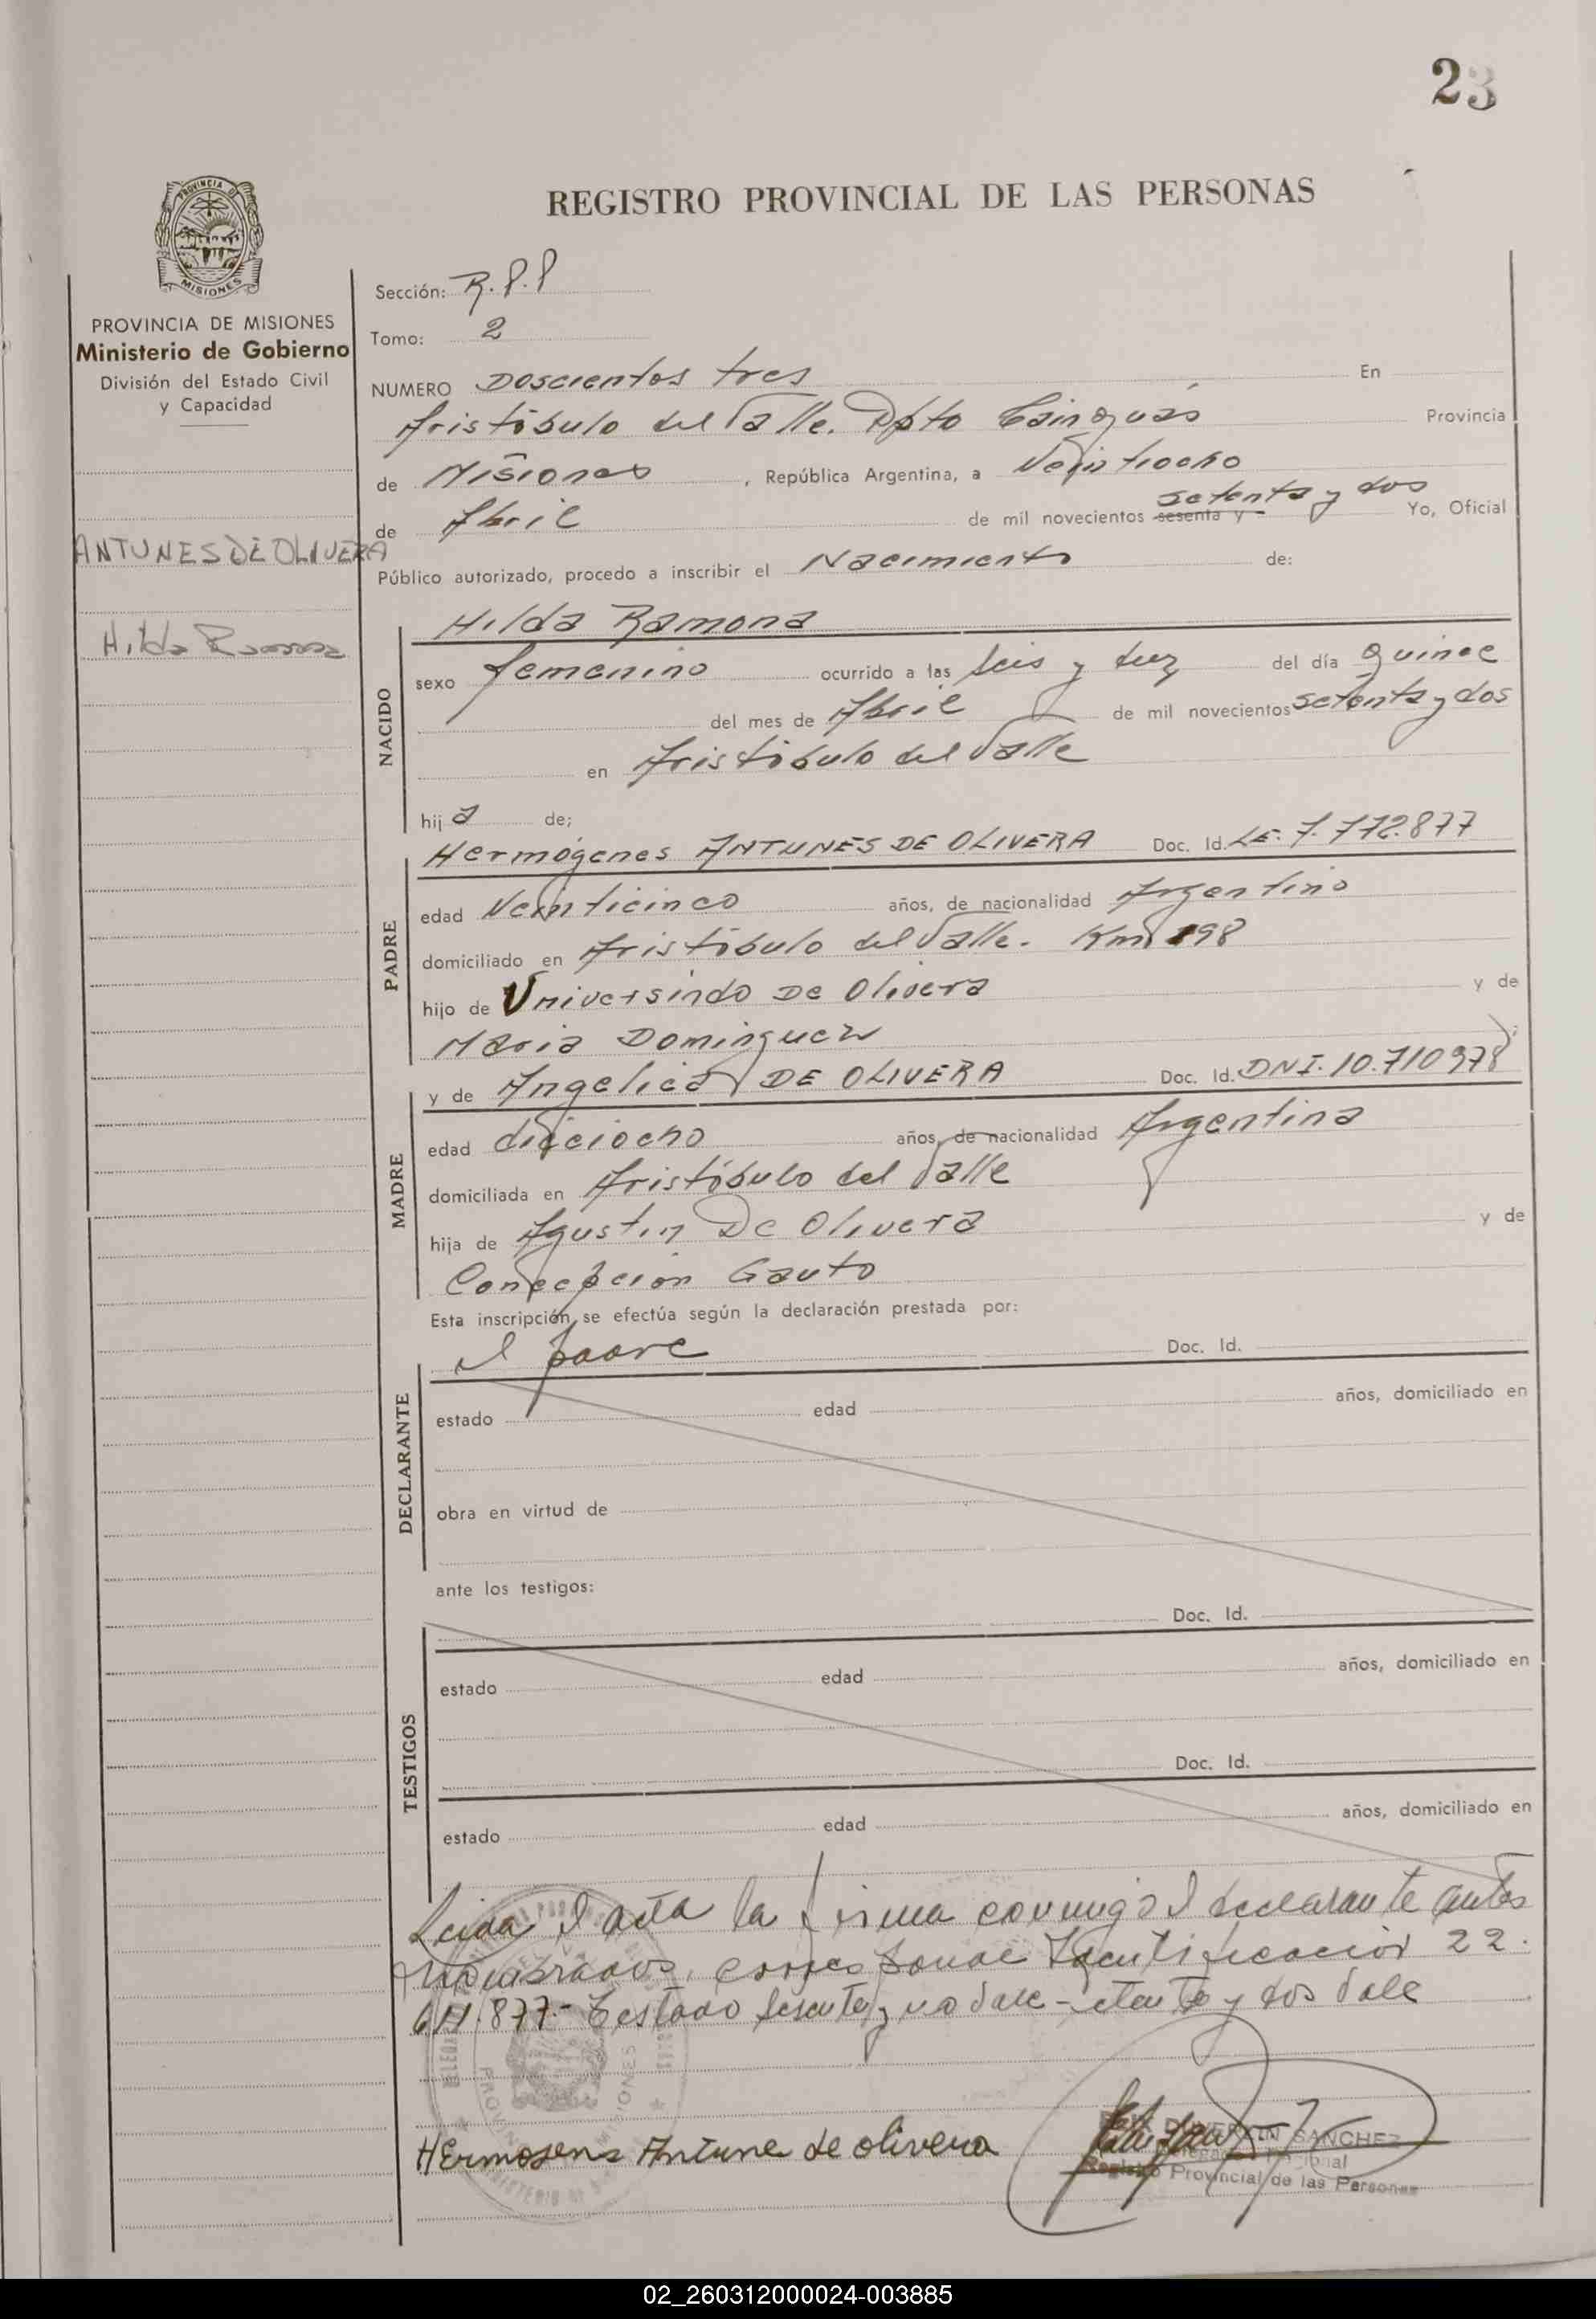 23
REGISTRO PROVINCIAL DE LAS PERSONAS
PROVINCIA DE MISIONES
Ministerio de Gobierno
División del Estado Civil
y Capacidad
ANTUNES DE OLIVERA
Hilda Ramona
Sección: R.P.P
Tomo: 2
NUMERO Doscientos tres En
Aristóbulo del Valle. Dpto Cainguás Provincia
de Misiones, República Argentina, a Veintiocho
de Abril de mil novecientos sesenta y setenta y dos Yo, Oficial
Público autorizado, procedo a inscribir el Nacimiento de:
NACIDO
Hilda Ramona
sexo femenino ocurrido a las seis y diez del día quince
del mes de Abril de mil novecientos setenta y dos
en Aristóbulo del Valle
hija de;
PADRE
Hermógenes ANTUNES DE OLIVERA Doc. Id. LE. 7.772.877
edad Veinticinco años, de nacionalidad Argentino
domiciliado en Aristóbulo del Valle. Km 198
hijo de Universindo De Olivera y de
Maria Dominguez
MADRE
y de Angelica DE OLIVERA Doc. Id. DNI. 10.710978
edad dieciocho años, de nacionalidad Argentina
domiciliada en Aristóbulo del Valle
hija de Agustin De Olivera y de
Concepcion Gauto
Esta inscripción se efectúa según la declaración prestada por:
DECLARANTE
el padre Doc. Id.
estado edad años, domiciliado en
obra en virtud de
ante los testigos:
TESTIGOS
Doc. Id.
estado edad años, domiciliado en
Doc. Id.
estado edad años, domiciliado en
Leida el acta la firma conmigo el declarante antes
nombrados, corresponde Identificación 22.
611.877.- Testado sesenta y no vale - setenta y dos vale
Hermogens Antune de olivera
SANCHEZ
Registro Provincial de las Personas
02_260312000024-003885